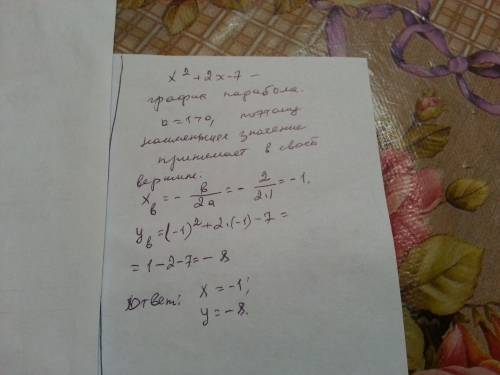 x² + 2x - 7 –
график парабола.
a = 1 > 0, поэтому
наименьшее значение
принимает в своей
вершине.
x_в = - в/2a = - 2/2·1 = -1.
y_в = (-1)² + 2·(-1) - 7 =
= 1 - 2 - 7 = - 8
Ответ: x = -1;
y = -8.